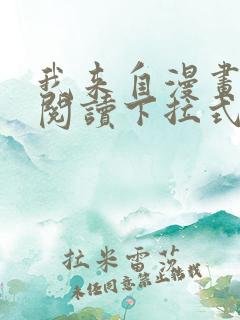 我来自漫畫
閱讀下拉式
拉米雷茨
未經同意禁止轉載